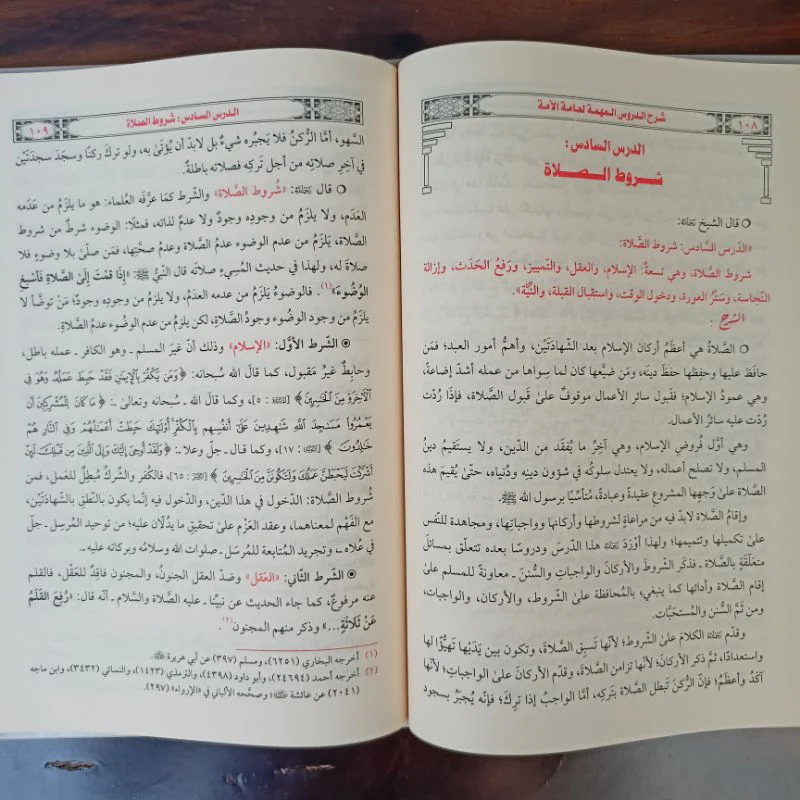 ١٠٨
شرح الدروس المهمة لعامة الأمة
الدرس السادس:
شروط الصلاة
○ قال الشيخ رَحِمَهُ اللهُ:
«الدَّرس السَّادس: شروط الصَّلاة:
شروط الصَّلاة، وهي تسعة: الإسلام، والعقل، والتَّمييز، ورَفعُ الحَدَث، وإزالة
النَّجاسة، وسَتْرُ العَورة، ودخول الوقت، واستقبال القبلة، والنِّيَّة».
الشرح :
○ الصَّلاةُ هي أعظَمُ أركان الإسلام بعد الشَّهادَتَيْن، وأهمُّ أمور العبد؛ فمَن
حافَظ عليها وحفِظها حفظَ دينَه، ومَن ضيَّعها كان لما سِواها من عمله أشدّ إضاعةً،
وهي عمودُ الإسلام؛ فقَبول سائر الأعمال موقوفٌ علىٰ قَبول الصَّلاة، فإذا رُدَّت
رُدَّت عليه سائرُ الأعمال.
وهي أوَّل فُروض الإسلام، وهي آخِرُ ما يُفقَد من الدِّين، ولا يستَقيمُ دينُ
المسلم، ولا تصلُح أعماله، ولا يعتدل سلوكُه في شؤون دينِه ودُنياه، حتَّىٰ يُقيمَ هذه
الصَّلاة علىٰ وَجهِها المشروع عقيدةً وعبادةً، مُتأسِّيًا برسول الله ﷺ.
وإقامُ الصَّلاة لابدَّ فيه من مراعاةٍ لشروطها وأركانها وواجباتِها، ومجاهدة للنَّفس
علىٰ تكميلها وتتميمها؛ ولهذا أوْرَدَ رَحِمَهُ اللهُ هذا الدَّرسَ ودروسًا بعده تتعلَّق بمسائلَ
متعلِّقةٍ بالصَّلاة ـ فذكَر الشُّروطَ والأركان والواجبات والسُّننَ ـ معاونةً للمسلم علىٰ
إقام الصَّلاة وأدائها كما ينبغي، بالمُحافظة علىٰ الشُّروط، والأركان، والواجبات،
ومن ثَمَّ السُّنن والمُستَحبَّات.
وقدَّم رَحِمَهُ اللهُ الكلامَ علىٰ الشُّروط؛ لأنَّها تَسبِق الصَّلاةَ، وتكون بين يَدَيْها تهيُّؤًا لها
واستعدادًا، ثمَّ ذكر الأركانَ؛ لأنَّها تزامن الصَّلاةَ، وقدَّم الأركانَ علىٰ الواجباتِ؛ لأنَّها
آكَدُ وأعظَمُ؛ فإنَّ الرُّكنَ تَبطل الصَّلاة بتَركِه، أمَّا الواجبُ إذا ترِكَ؛ فإنَّه يُجبَرُ بسجود
الدرس السادس: شروط الصلاة
١٠٩
السهو، أمَّا الرُّكنُ فلا يَجبُره شيءٌ بل لابدَّ أن يُؤتَىٰ به، ولو تركَ ركنًا وسجَدَ سجدَتَيْن
في آخِر صلاتِه من أجل تَركِه فصلاته باطلةٌ.
○ قال رَحِمَهُ اللهُ: «شُروط الصَّلاة» والشرط كمَا عرَّفَه العُلماء: هو ما يلزَمُ من عَدَمه
العَدَم، ولا يلزَمُ من وجودِه وجودٌ ولا عدمٌ لذاته، فمثلًا: الوضوء شرطٌ من شروط
الصَّلاة، يَلزَمُ من عدم الوضوء عدمُ الصَّلاة وعدمُ صحَّتِها، فمَن صلَّىٰ بلا وضوءٍ فلا
صلاةَ له، ولهذا في حديث المُسِيءِ صلاتَه قال النَّبيُّ ﷺ: «إِذَا قُمْتَ إِلَىٰ الصَّلاةِ فَأَسْبِغِ
الوُضُوءَ»(١). فالوُضوءُ يَلزَمُ من عدمه العدمُ، ولا يلزَمُ من وجودِه وجودٌ؛ مَنْ توضَّأ لا
يلزَم من وجود الوضُوء وجودُ الصَّلاةِ، لكن يلزَم من عدم الوضُوء عدمُ الصَّلاةِ.
◉ الشرط الأوَّل: «الإسلام» وذلك أنَّ غيرَ المسلم ـ وهو الكافر ـ عمله باطل،
وحابِطٌ غيرُ مَقبول، كما قالَ الله سُبحانه: ﴿وَمَن يَكْفُرْ بِٱلْإِيمَٰنِ فَقَدْ حَبِطَ عَمَلُهُۥ وَهُوَ فِى
ٱلْءَاخِرَةِ مِنَ ٱلْخَٰسِرِينَ﴾ [المائدة : ٥]، وكما قال الله ـ سبحانه وتعالىٰ ـ: ﴿مَا كَانَ لِلْمُشْرِكِينَ أَن
يَعْمُرُواْ مَسَٰجِدَ ٱللَّهِ شَٰهِدِينَ عَلَىٰٓ أَنفُسِهِم بِٱلْكُفْرِ أُوْلَٰٓئِكَ حَبِطَتْ أَعْمَٰلُهُمْ وَفِى ٱلنَّارِ هُمْ
خَٰلِدُونَ﴾ [التوبة : ١٧]، وكما قـال ـ جـل وعـلا ـ: ﴿وَلَقَدْ أُوحِىَ إِلَيْكَ وَإِلَى ٱلَّذِينَ مِن قَبْلِكَ لَئِنْ
أَشْرَكْتَ لَيَحْبَطَنَّ عَمَلُكَ وَلَتَكُونَنَّ مِنَ ٱلْخَٰسِرِينَ﴾ [الزمر : ٦٥]، فالكُفر والشِّركُ مُبطِلٌ للعَمل، فمن
شُروط الصَّلاة: الدُّخول في هذا الدِّين، والدُّخول فيه إنَّما يكون بالنُّطقِ بالشَّهادَتَيْن،
مع الفَهْم لمعناهما، وعقد العَزْم علىٰ تحقيقِ ما يدُلَّان عليه؛ من توحيد المُرسِل ـ جلَّ
في عُلاه ـ، وتجريد المُتابعة للمُرسَل ـ صلوات الله وسلامُه وبركاته عليه ـ.
◉ الشَّرط الثَّاني: «العَقل» وضدّ العقل الجنونُ، والمجنون فاقِدٌ للعَقْل، فالقلم
عنه مرفوعٌ، كما جاء الحديث عن نبيِّنا ـ عليه الصَّلاة والسَّلام ـ أنَّه قال: «رُفِعَ القَلَمُ
عَنْ ثَلَاثَةٍ...» وذكر منهم المجنون(٢).
(١) أخرجه البخاري (٦٢٥١)، ومسلم (٣٩٧) عن أبي هريرة رَضِيَ اللهُ عَنْهُ.
(٢) أخرجه أحمد (٢٤٦٩٤)، وأبو داود (٤٣٩٨)، والترمذي (١٤٢٣)، والنسائي (٣٤٣٢)، وابن ماجه
(٢٠٤١) عن عائشة رَضِيَ اللهُ عَنْهَا؛ وصحَّحه الألباني في «الإرواء» (٢٩٧).